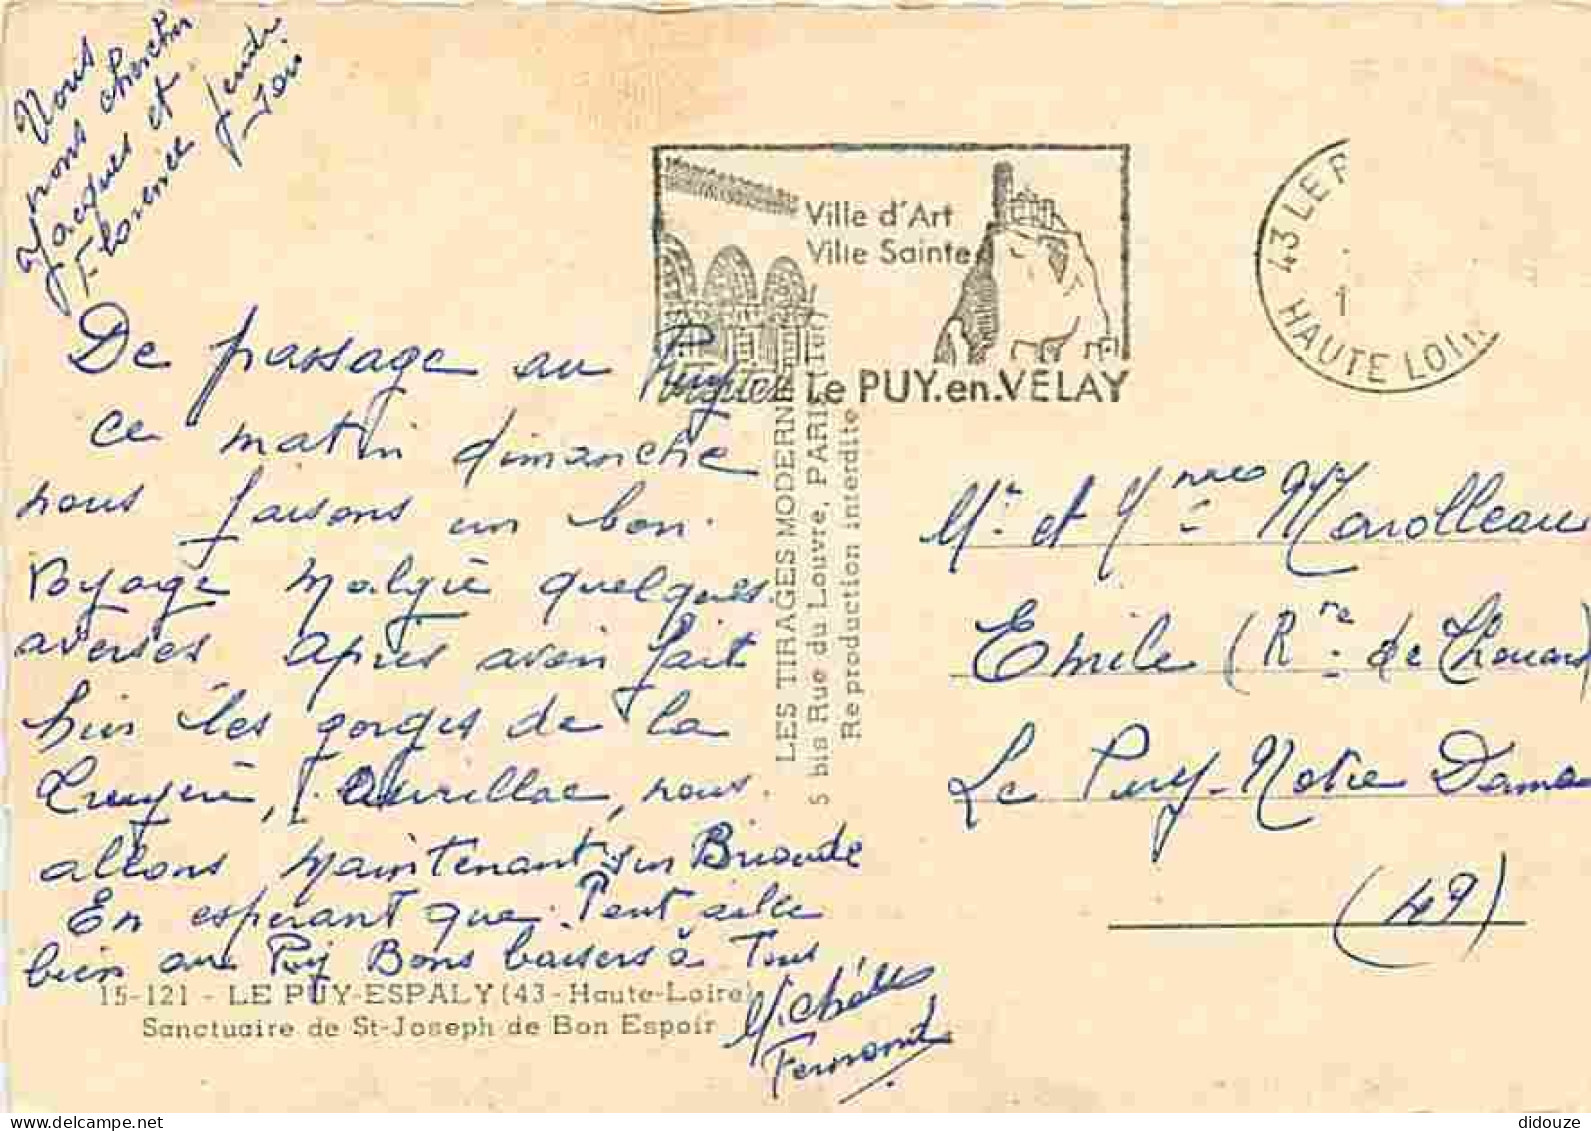 Nous
irons chercher
Jacques et
Florence jeudi
soir
De passage au Puy
ce matin dimanche
nous faisons un bon
voyage malgré quelques
averses après avoir fait
hier les gorges de la
Truyère, Aurillac, nous
allons maintenant sur Brioude
En espérant que tout aille
bien au Puy Bons baisers à Tous
Michèle
Fernand
15-121 - LE PUY-ESPALY (43 - Haute-Loire)
Sanctuaire de St-Joseph de Bon Espoir
LES TIRAGES MODERNES
5 bis Rue du Louvre, PARIS (1er)
Reproduction interdite
Ville d'Art
Ville Sainte
Le PUY.en.VELAY
43 LE P
1
HAUTE LOIR
Mr et Mme Marolleau
Emile (Rte de Thouars)
Le Puy-Notre Dame
(49)
didouze